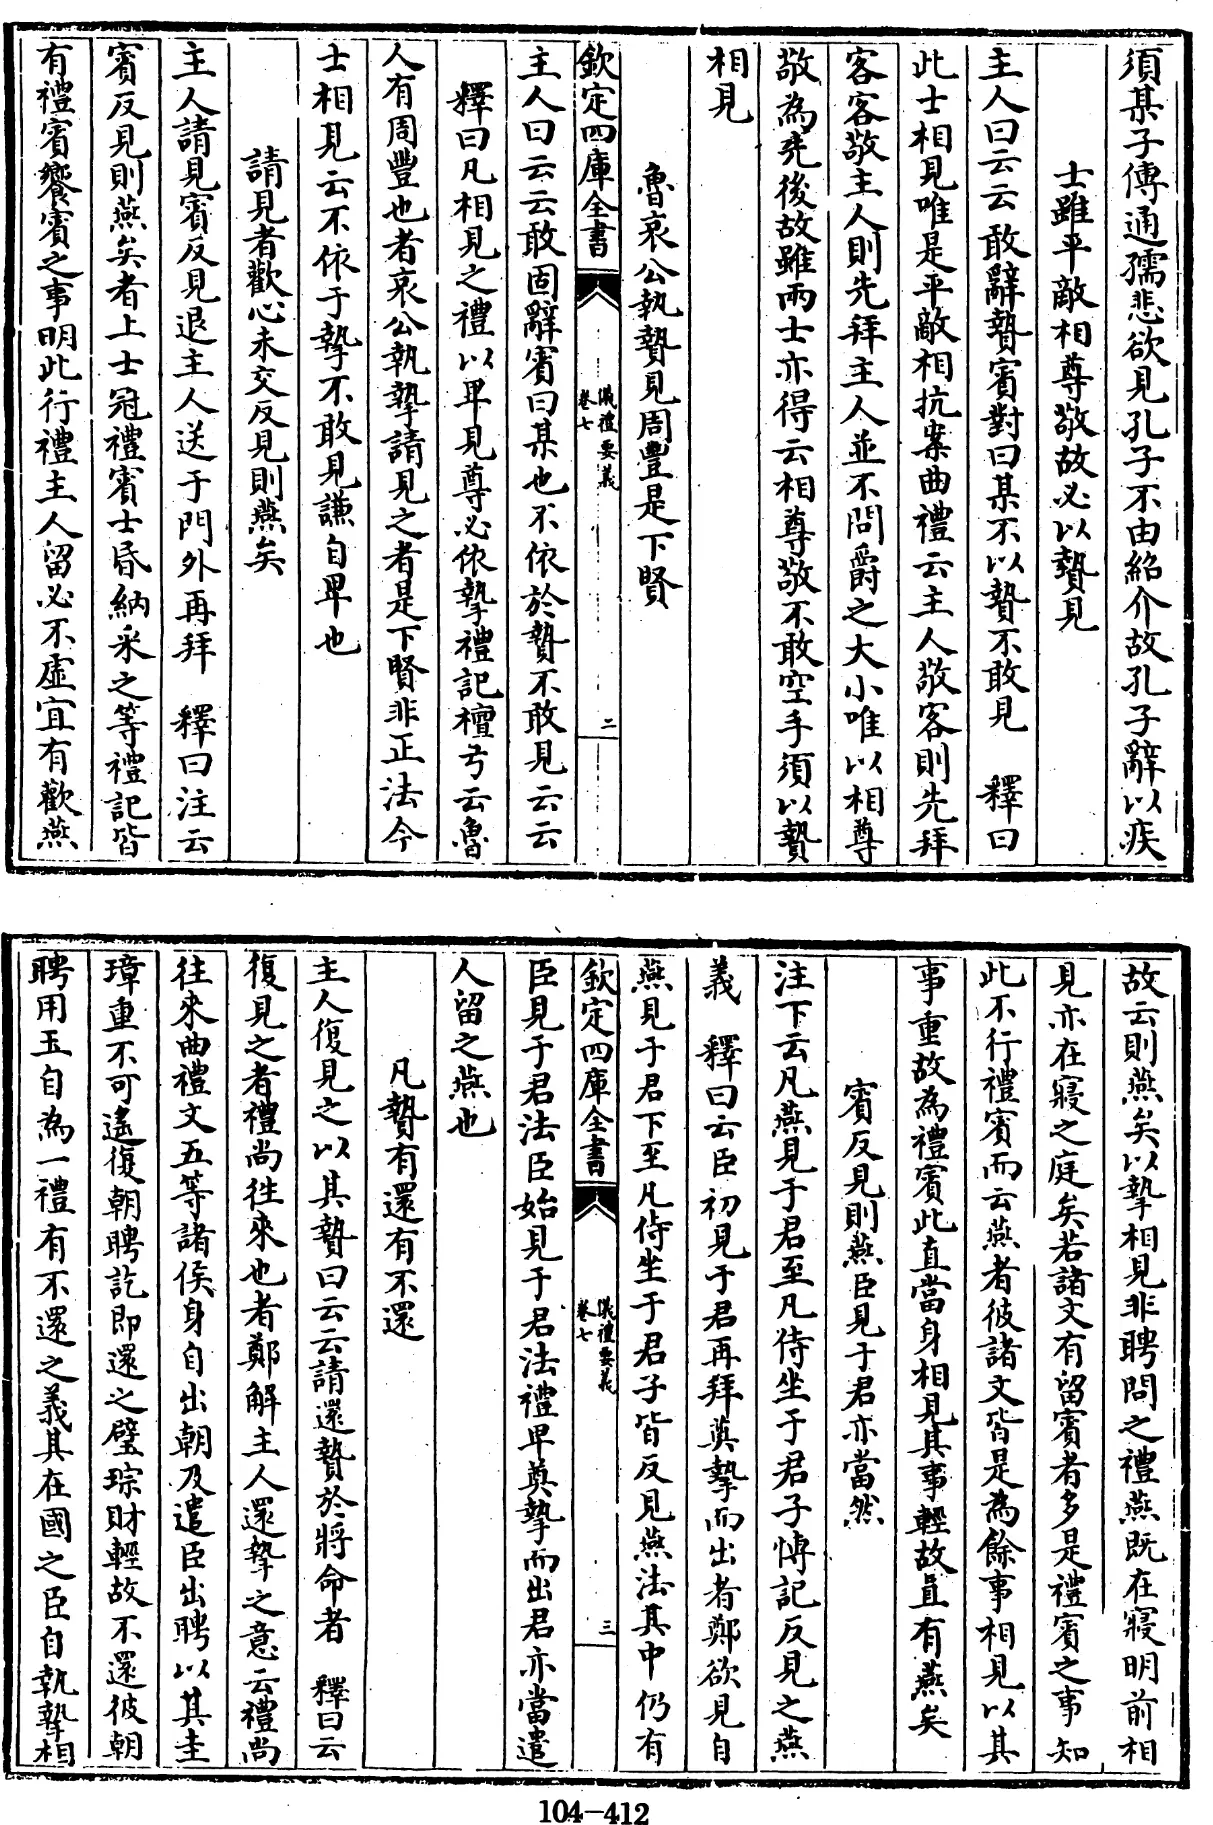 須某子傳通孺悲欲見孔子不由紹介故孔子辭以疾
士雖平敵相尊敬故必以贄見
主人曰云云敢辭贄賓對曰某不以贄不敢見　釋曰
此士相見唯是平敵相抗案曲禮云主人敬客則先拜
客客敬主人則先拜主人並不問爵之大小唯以相尊
敬為先後故雖兩士亦得云相尊敬不敢空手須以贄
相見
魯哀公執贄見周豐是下賢
欽定四庫全書
儀禮要義
卷七
二
主人曰云云敢固辭賓曰某也不依於贄不敢見云云
釋曰凡相見之禮以卑見尊必依摯禮記檀弓云魯
人有周豐也者哀公執摯請見之者是下賢非正法今
士相見云不依于摯不敢見謙自卑也
請見者歡心未交反見則燕矣
主人請見賓反見退主人送于門外再拜　釋曰注云
賓反見則燕矣者上士冠禮賓士昏納采之等禮記皆
有禮賓饗賓之事明此行禮主人留必不虛宜有歡燕
故云則燕矣以摯相見非聘問之禮燕既在寢明前相
見亦在寢之庭矣若諸文有留賓者多是禮賓之事知
此不行禮賓而云燕者彼諸文皆是為餘事相見以其
事重故為禮賓此直當身相見其事輕故直有燕矣
賓反見則燕臣見于君亦當然
注下云凡燕見于君至凡侍坐于君子博記反見之燕
義　釋曰云臣初見于君再拜奠摯而出者鄭欲見自
燕見于君下至凡侍坐于君子皆反見燕法其中仍有
欽定四庫全書
儀禮要義
卷七
三
臣見于君法臣始見于君法禮卑奠摯而出君亦當遣
人留之燕也
凡贄有還有不還
主人復見之以其贄曰云云請還贄於將命者　釋曰云
復見之者禮尚往來也者鄭解主人還摯之意云禮尚
往來曲禮文五等諸侯身自出朝及遣臣出聘以其圭
璋重不可遙復朝聘訖即還之璧琮財輕故不還彼朝
聘用玉自為一禮有不還之義其在國之臣自執摯相
104-412